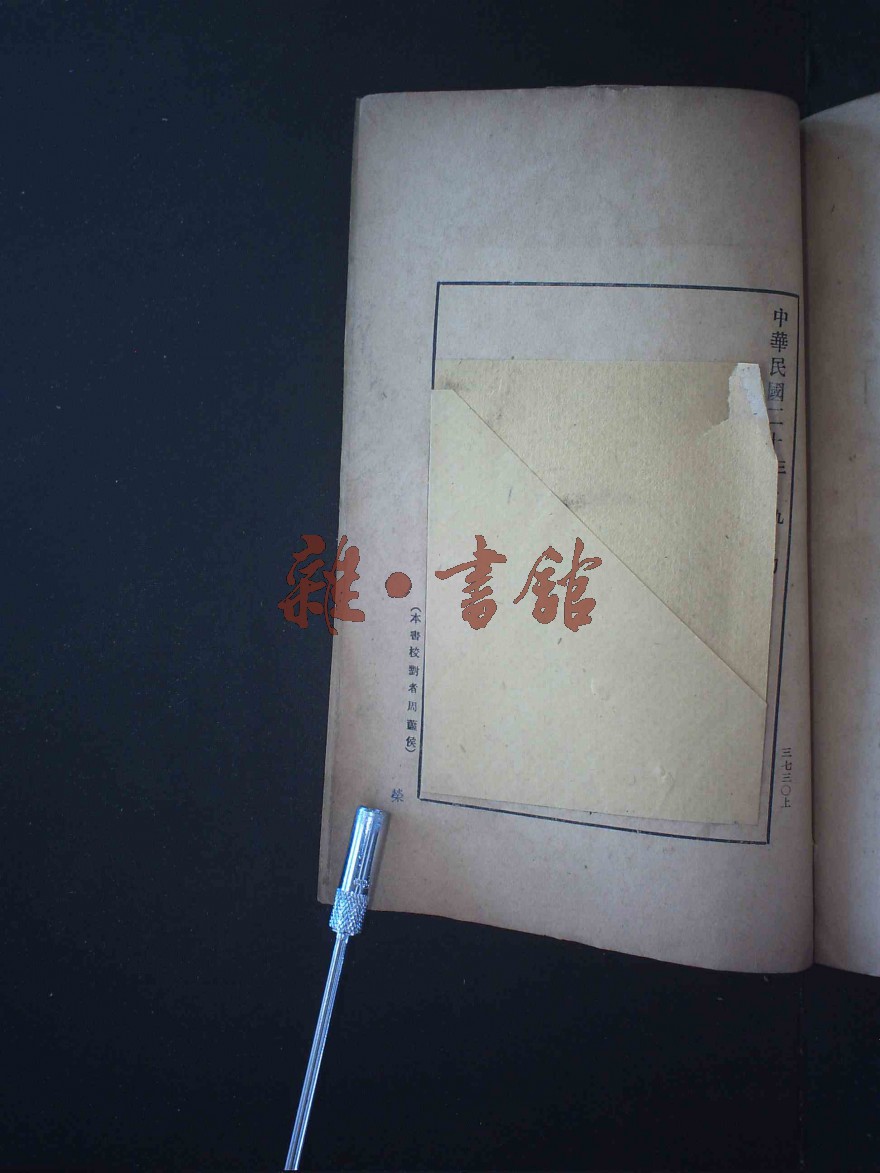 中華民國二十三
九
三七三〇上
(本書校對者周蓲侯)
榮
雜·書館